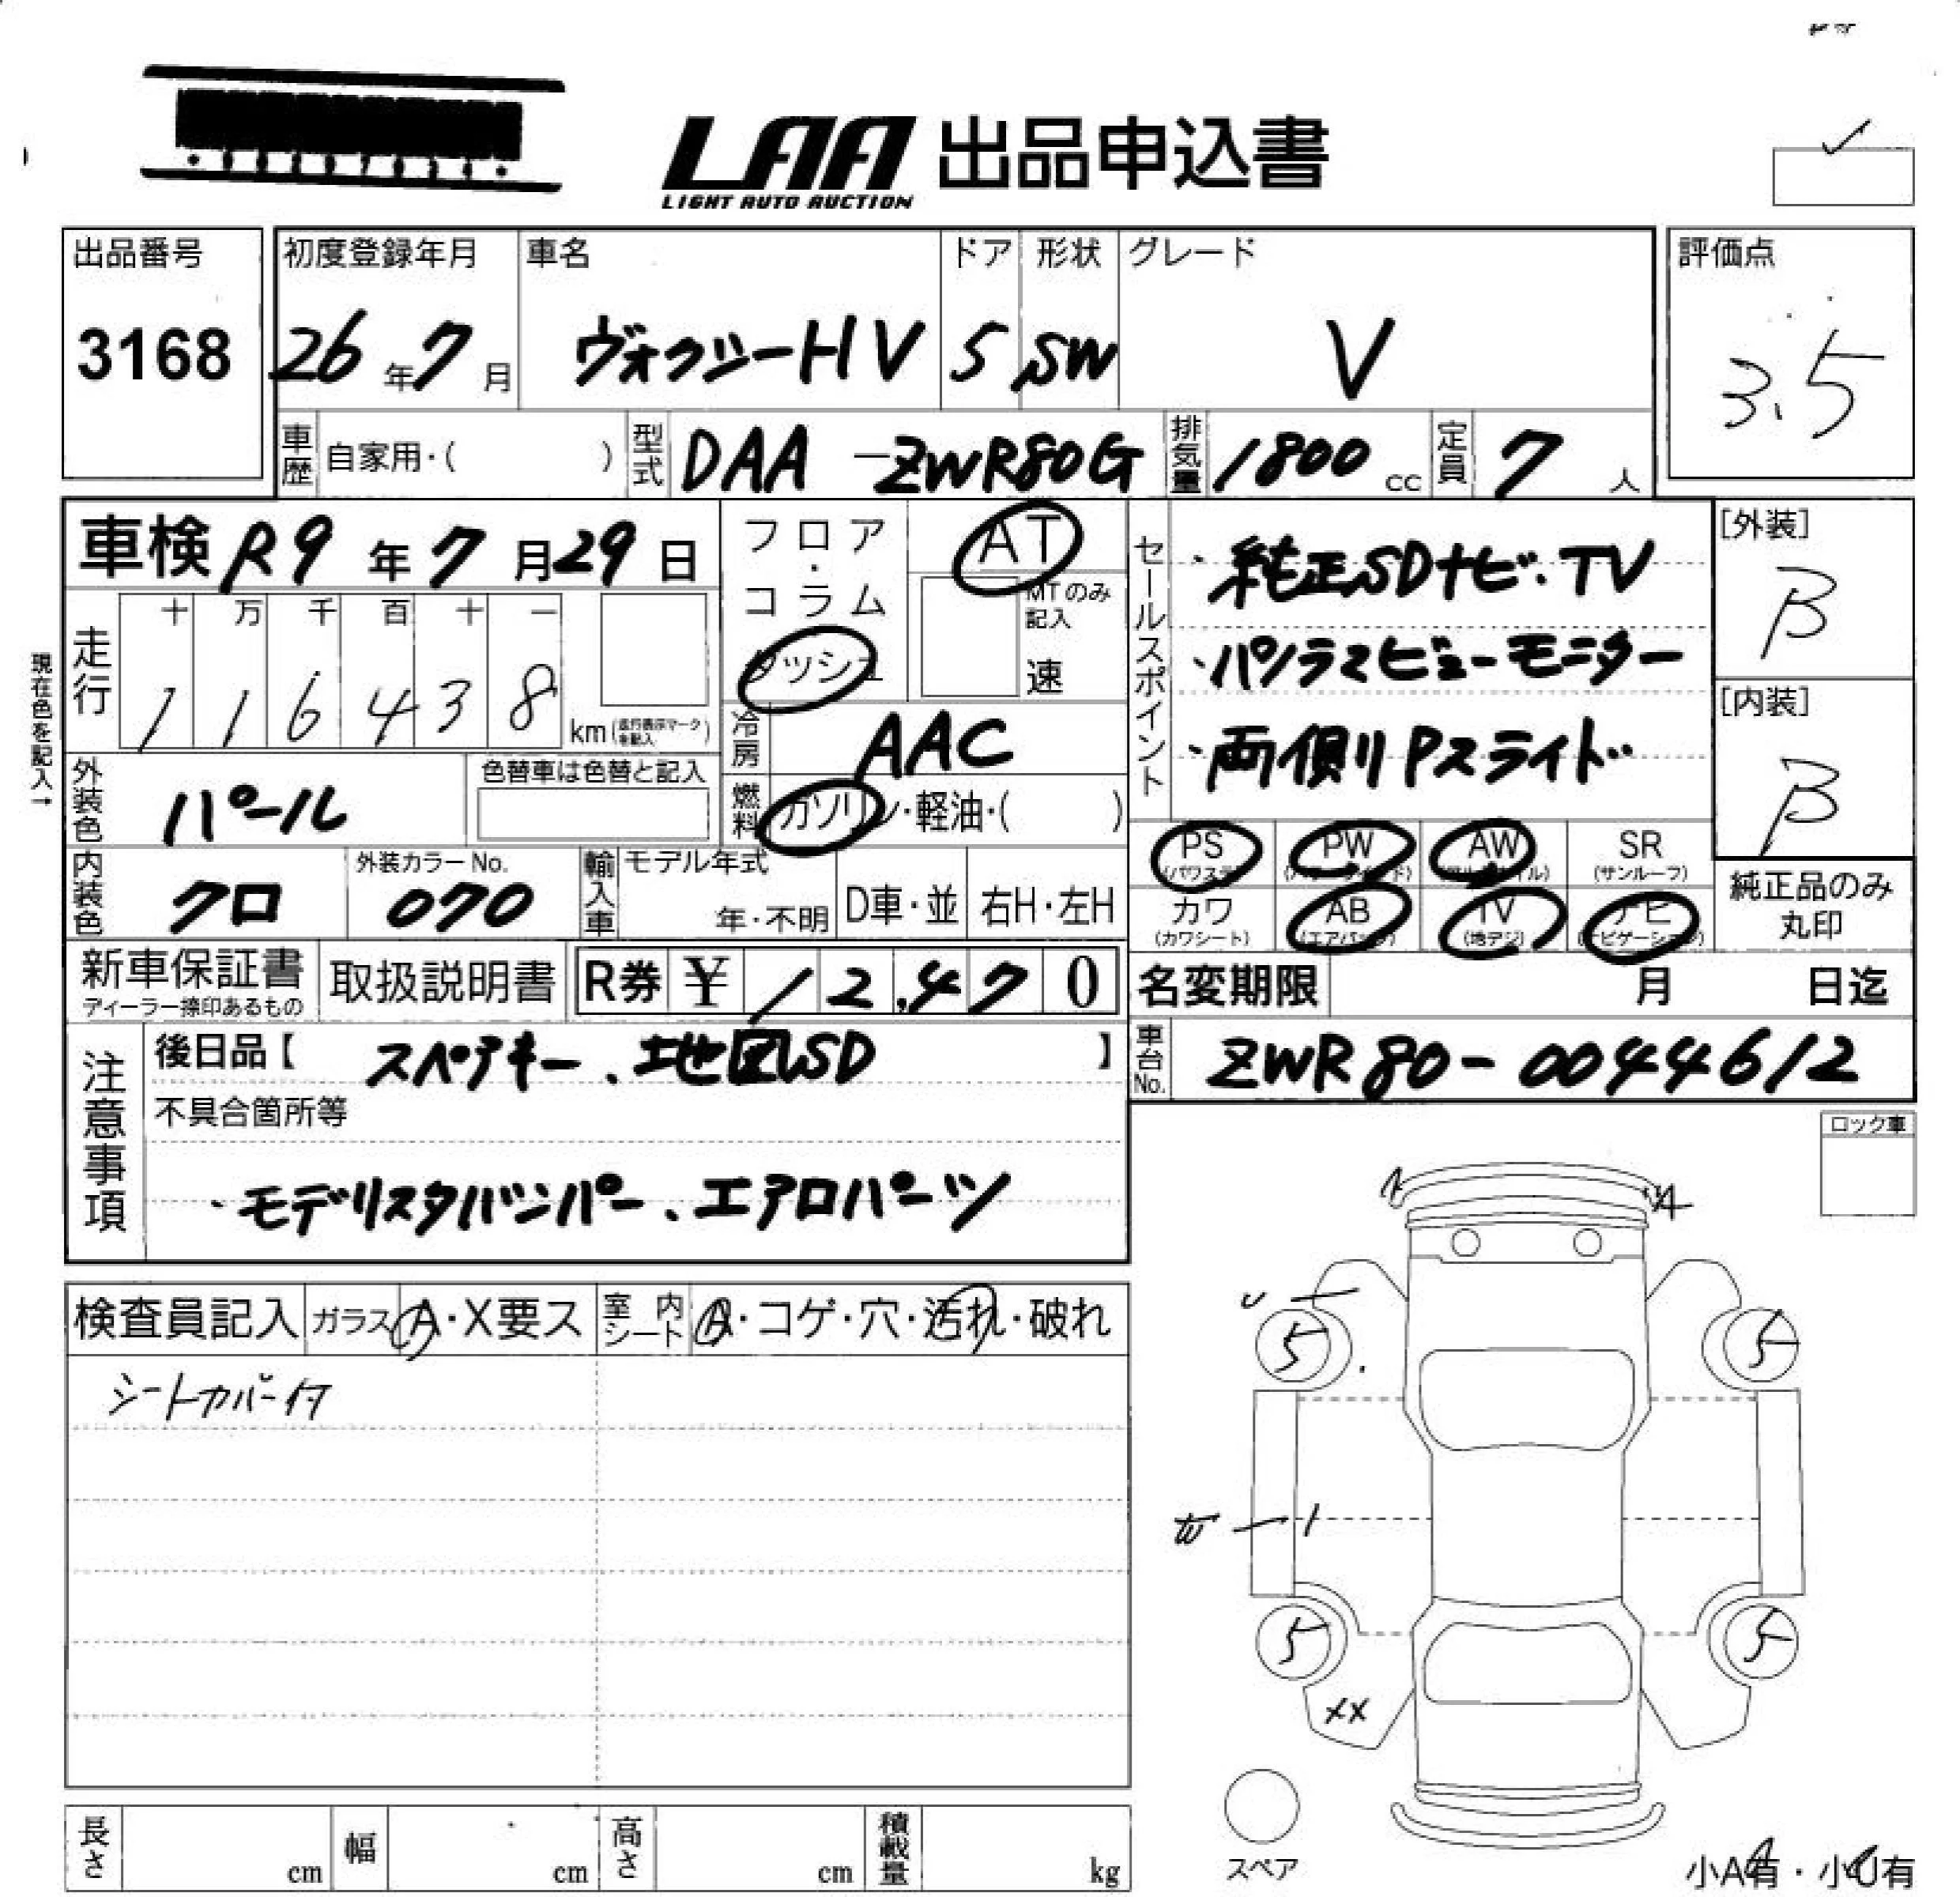 LAA 出品申込書
LIGHT AUTO AUCTION
出品番号
3168
初度登録年月
26年7月
車名
ヴォクシーHV
ドア
5
形状
SW
グレード
V
評価点
3.5
車歴 自家用・( )
型式 DAA-ZWR80G
排気量 1800cc
定員 7人
車検 R9年7月29日
フロア・コラム
ダッシュ
AT
MTのみ記入
速
セールスポイント
・純正SDナビ・TV
・パノラマビューモニター
・両側Pスライド
[外装]
B
[内装]
B
現在色を記入→
走行
十 万 千 百 十 一
1 1 6 4 3 8
km(走行表示マークを記入)
冷房 AAC
外装色 パール
色替車は色替と記入
燃料 ガソリン・軽油・( )
PS (パワステ)
PW
AW
SR (サンルーフ)
カワ (カワシート)
AB (エアバッグ)
TV (地デジ)
ナビ (ナビゲーション)
純正品のみ丸印
内装色 クロ
外装カラーNo. 070
輸入車
モデル年式
年・不明
D車・並
右H・左H
新車保証書
ディーラー捺印あるもの
取扱説明書
R券 ¥ 12,470
名変期限 月 日迄
注意事項
後日品【 スペアキー、地図SD 】
車台No. ZWR80-0044612
不具合箇所等
・モデリスタバンパー、エアロパーツ
ロック車
検査員記入 ガラス A・X要ス
室内シート A・コゲ・穴・汚れ・破れ
シートカバー付
A
U
5 5
W
1
5 5
XX
スペア
長さ cm
幅 cm
高さ cm
積載量 kg
小A有・小U有